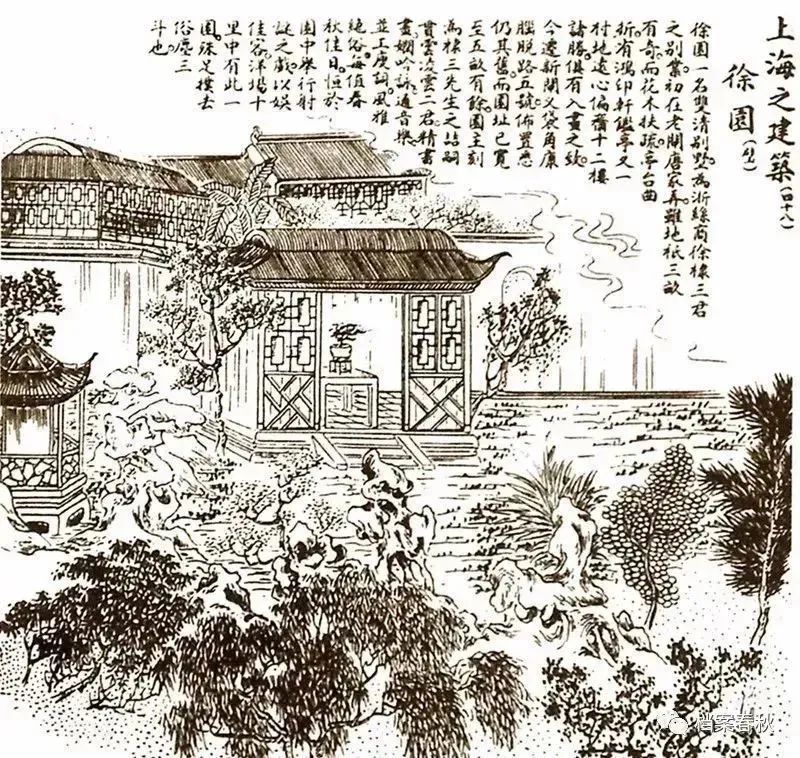 上海之建築(四十八)
徐園
徐園一名雙清別墅為浙絲商徐棣三君
之別業初在老閘唐家弄雖地祇三畝
有奇而花木扶疏亭台曲
折有鴻印軒鑑亭又一
村地遠心偏舊十二樓
諸勝俱有入畫之致
今遷新閘乂袋角康
腦脫路五號佈置悉
仍其舊而園址已寬
至五畝有餘園主刻
為棣三先生之喆嗣
貫雲凌雲二君精書
畫嫻吟詠通音樂
並工度詞風雅
絕俗每值春
秋佳日恒於
園中舉行射
謎之戲以娛
佳客洋場十
里中有此一
園殊足撲去
俗塵三
斗也
档案春秋